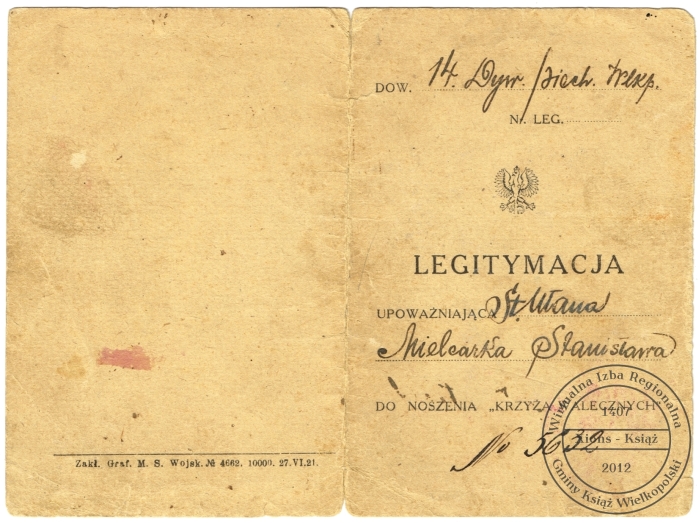 Zakł. Graf. M. S. Wojsk. № 4662. 10000. 27.VI.21.
DOW. 14. Dyw. piech. Wlkp.
Nr. LEG.
LEGITYMACJA
UPOWAŻNIAJĄCA St. Ułana
Mielcarka Stanisława
DO NOSZENIA „KRZYŻA WALECZNYCH"
No 5632
Wirtualna Izba Regionalna
1407
Xions - Książ
2012
Gminy Książ Wielkopolski